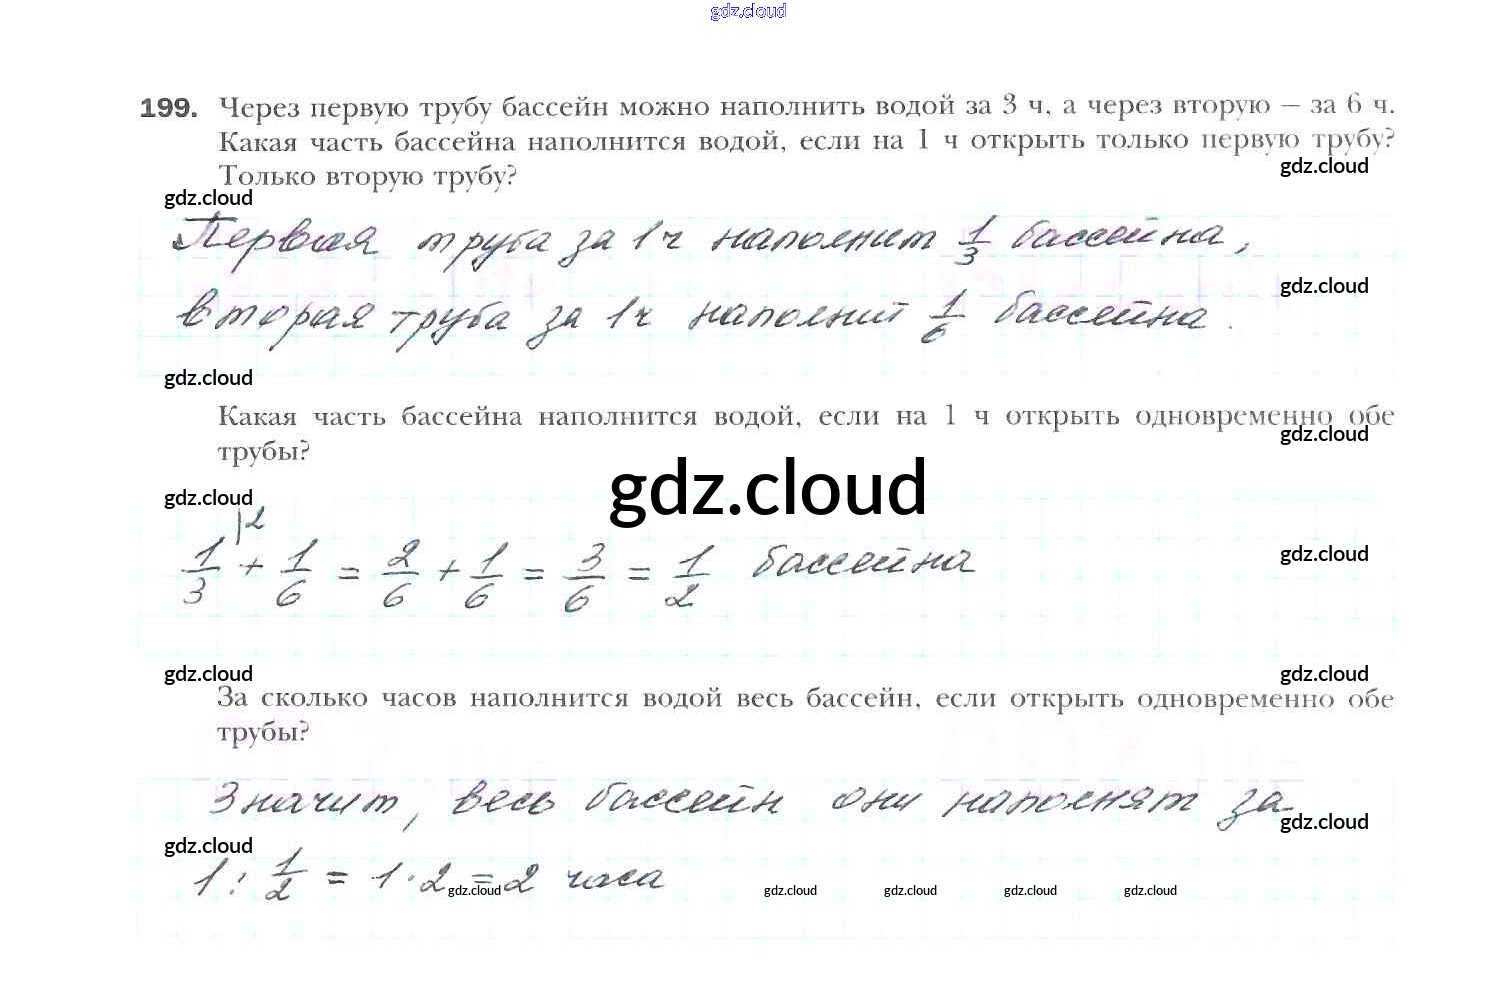 gdz.cloud
199. Через первую трубу бассейн можно наполнить водой за 3 ч, а через вторую – за 6 ч.
Какая часть бассейна наполнится водой, если на 1 ч открыть только первую трубу?
gdz.cloud
Только вторую трубу?
gdz.cloud
Первая труба за 1 ч наполнит 1/3 бассейна,
gdz.cloud
вторая труба за 1 ч наполнит 1/6 бассейна.
gdz.cloud
Какая часть бассейна наполнится водой, если на 1 ч открыть одновременно обе
gdz.cloud
трубы?
gdz.cloud
gdz.cloud
1/3 |2 + 1/6 = 2/6 + 1/6 = 3/6 = 1/2 бассейна
gdz.cloud
gdz.cloud
gdz.cloud
За сколько часов наполнится водой весь бассейн, если открыть одновременно обе
трубы?
Значит, весь бассейн они наполнят за
gdz.cloud
gdz.cloud
1 : 1/2 = 1 · 2 = 2 часа
gdz.cloud gdz.cloud gdz.cloud gdz.cloud gdz.cloud